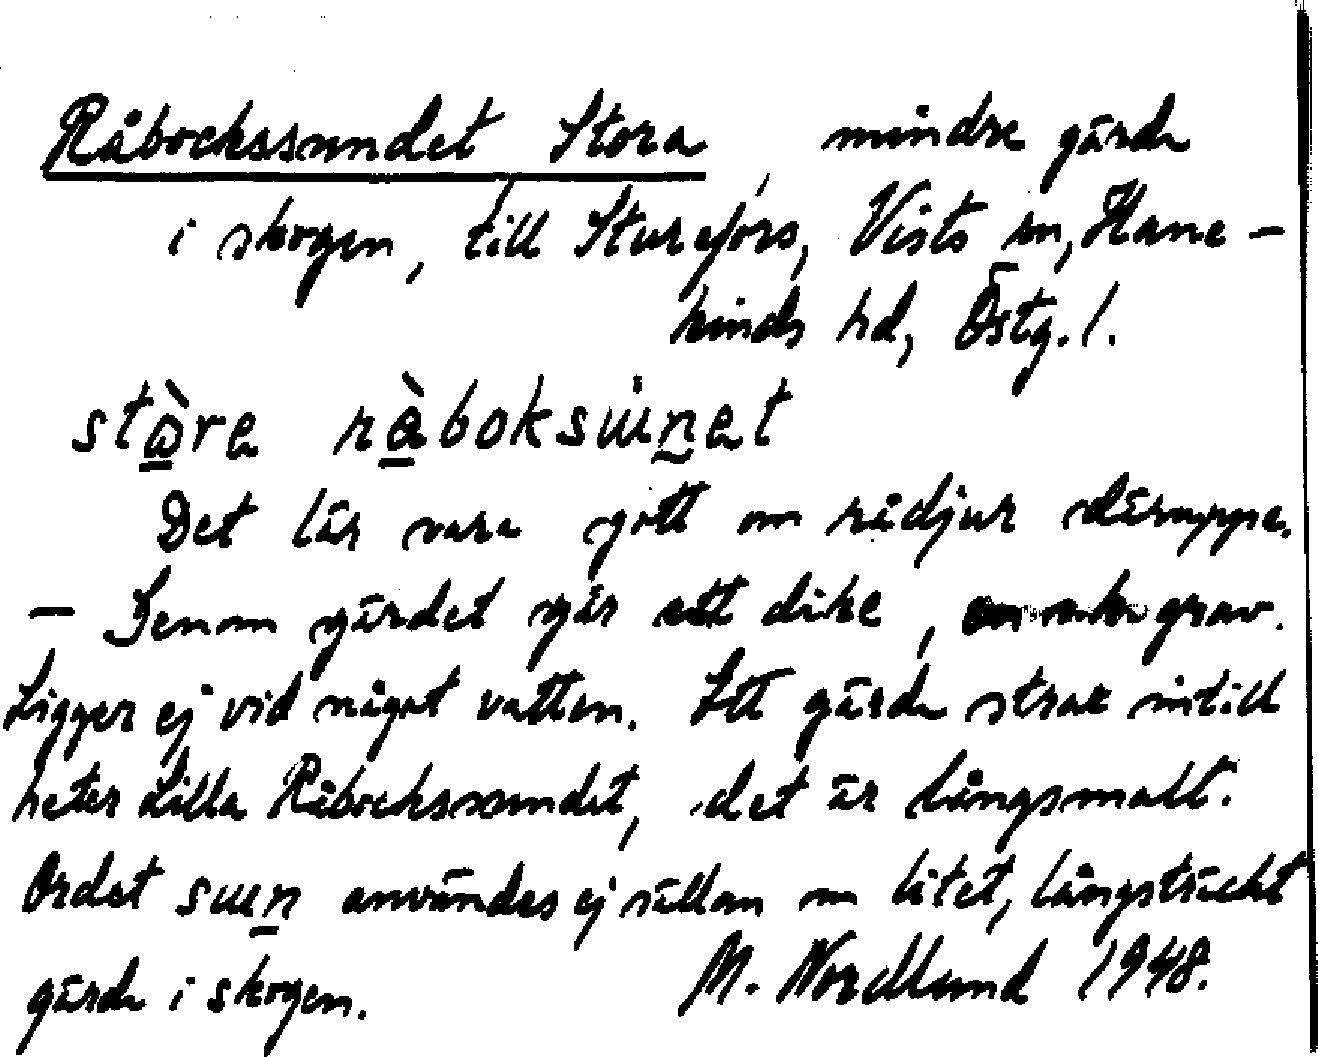 Råbockssundet Stora, mindre gärde
i skogen, till Sturefors, Vists sn, Hane-
kinds hd, Östg. l.
Det lär vara gott om rådjur däruppe.
– Genom gärdet går ett dike, grav.
Ligger ej vid något vatten. Ett gärde strax intill
heter Lilla Råbockssundet, det är långsmalt.
Ordet användes ej sällan om litet, långsträckt
gärde i skogen. M. Nordlund 1948.